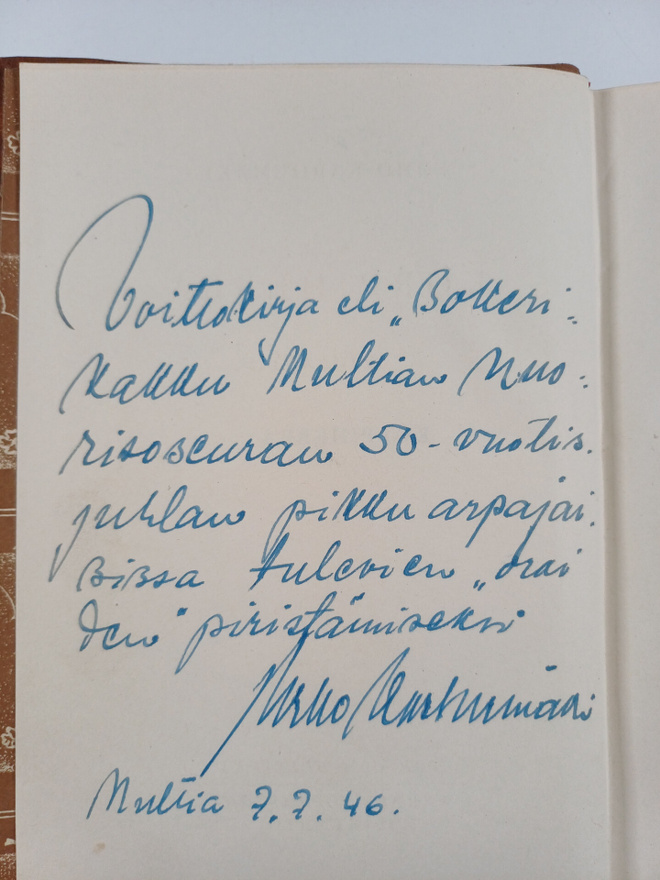 Voittokirja eli „Bokeri-
kakku Multian Nuo-
risoseuran 50-vuotis-
juhlan pikku arpajai-
sissa tulevien „orai
den" piristämiseksi
Urho Karhumäki
Multia 7.7.46.